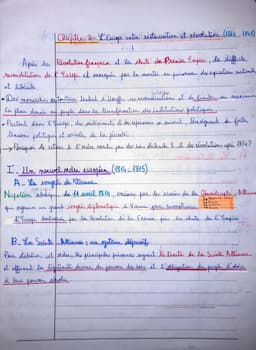 Chapitre 2: L'Europe entre restauration et révolution (1814 - 1848)
Après la Révolution française et la chute du Premier Empire, la difficile
reconstitution de l'Europe est marquée par la montée en puissance des aspirations nationales
et libérales.
Des monarchies autoritaires tentent d'étouffer ces revendications et de limiter au maximum
la place donnée au peuple dans la transformation des institutions politiques.
Partout dans l'Europe, des mouvements de contestation se suivent, témoignant de fortes
tensions politiques et sociales de la société.
→ Pourquoi le retour à l'ordre voulu par les rois échoue t-il et des révolutions après 1814?
I - Un nouvel ordre européen (1814 - 1815)
A - Le congrès de Vienne
Napoléon abdique le 11 avril 1814, vaincu par les armées de la Quadruple-Alliance
qui organise un grand congrès diplomatique à Vienne pour reconstruire
l'Europe bouleversée par la Révolution de la France par la chute de l'Empire
B - La Sainte-Alliance: un système défensif
Pour rétablir cet ordre, les principales puissances signent le traité de la Sainte Alliance
et affirment la légitimité divine du pouvoir des rois et l'obligation du peuple d'obéir
à leur pouvoir absolu.